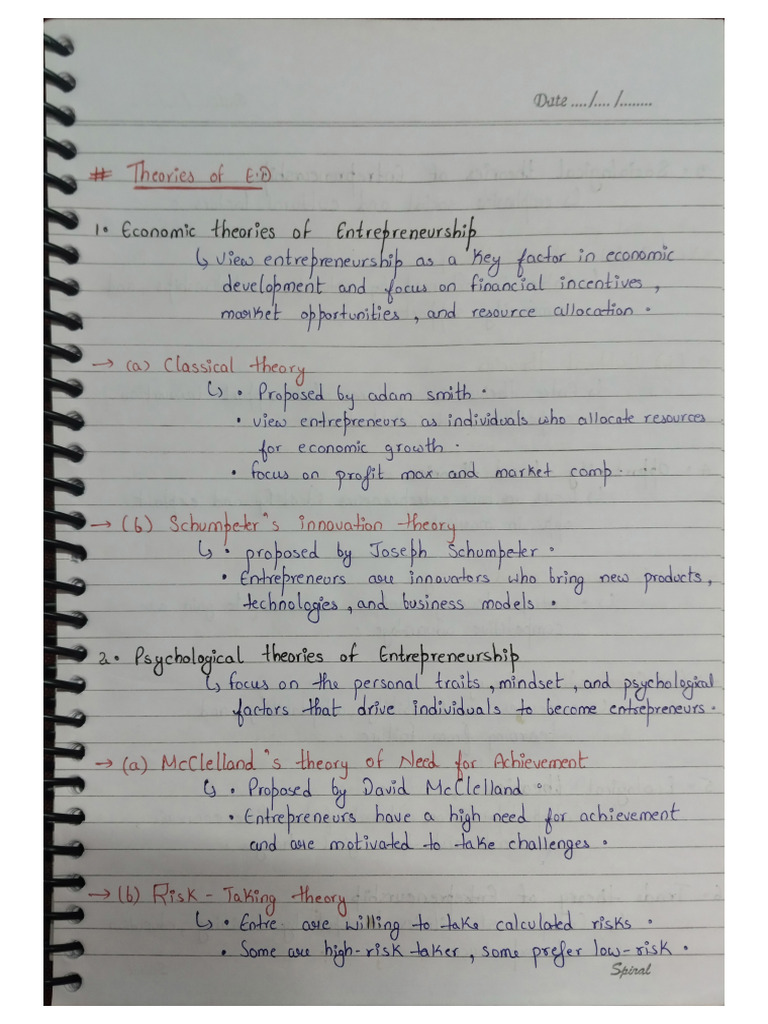 Date ..../..../........
# Theories of E.D
1. Economic theories of Entrepreneurship
↳ view entrepreneurship as a key factor in economic
development and focus on financial incentives,
market opportunities, and resource allocation.
→ (a) Classical theory
↳ • Proposed by adam smith.
• view entrepreneurs as individuals who allocate resources
for economic growth.
• focus on profit max and market comp.
→ (b) Schumpeter's innovation theory
↳ • proposed by Joseph Schumpeter.
• Entrepreneurs are innovators who bring new products,
technologies, and business models.
2. Psychological theories of Entrepreneurship
↳ focus on the personal traits, mindset, and psychological
factors that drive individuals to become entrepreneurs.
→ (a) McClelland's theory of Need for Achievement
↳ • Proposed by David McClelland.
• Entrepreneurs have a high need for achievement
and are motivated to take challenges.
→ (b) Risk-Taking theory
↳ • Entre. are willing to take calculated risks.
• Some are high-risk taker, some prefer low-risk.
Spiral